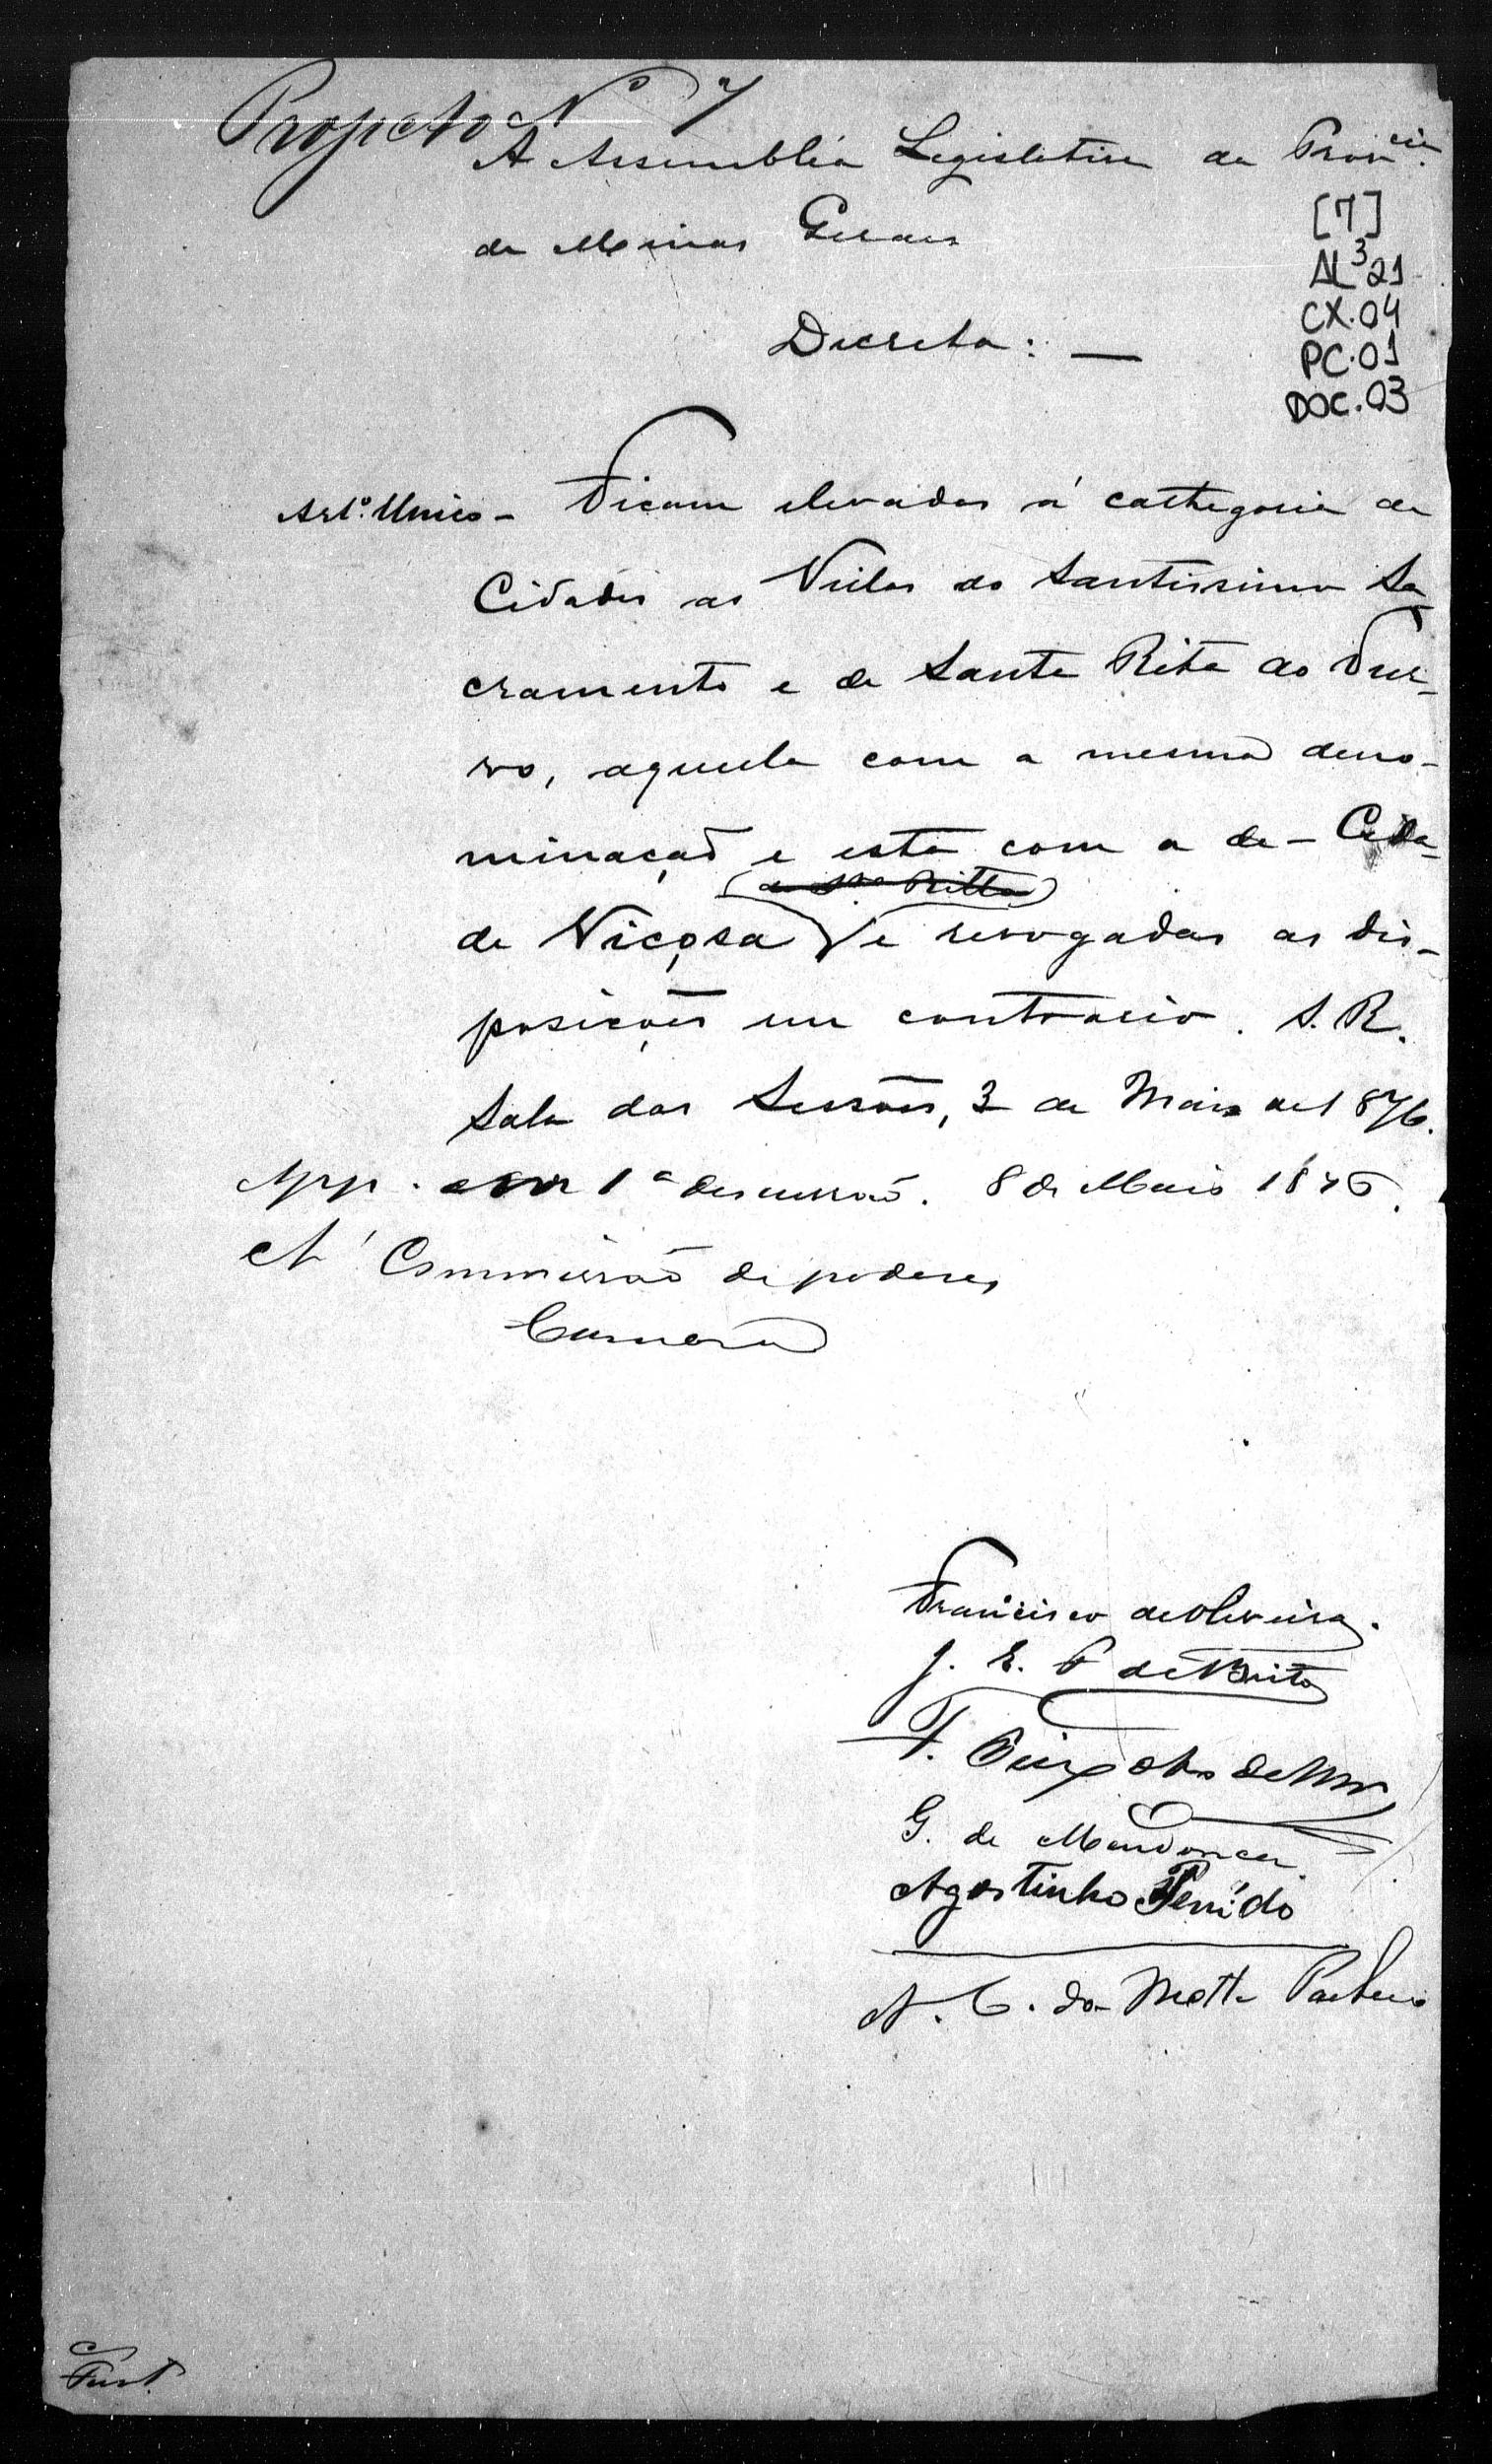 Projecto Nº 7
A Assembléa Legislativa da Provcia.
de Minas Geraes
[7]
AL³21
CX.04
PC.01
DOC.03
Decreta: —
Artº. Unico - Ficam elevadas á cathegoria de
Cidades as Villas do Santissimo Sa
cramento e de Santa Rita do Tur-
vo, aquella com a mesma deno-
minação e esta com a de - Cida-
(de Sta Ritta)
de Viçosa e revogadas as dis-
posições em contrario. S. R.
Sala das Sessões, 3 de Maio de 1876.
App. em 1ª discussão. 8 de Maio 1876.
A' Commissão de poderes
Francisco de Oliveira.
J. E. F de Brito
F. Peixoto de
G. de Mendonça
Agostinho Penido
A. C. da Motta Pacheco